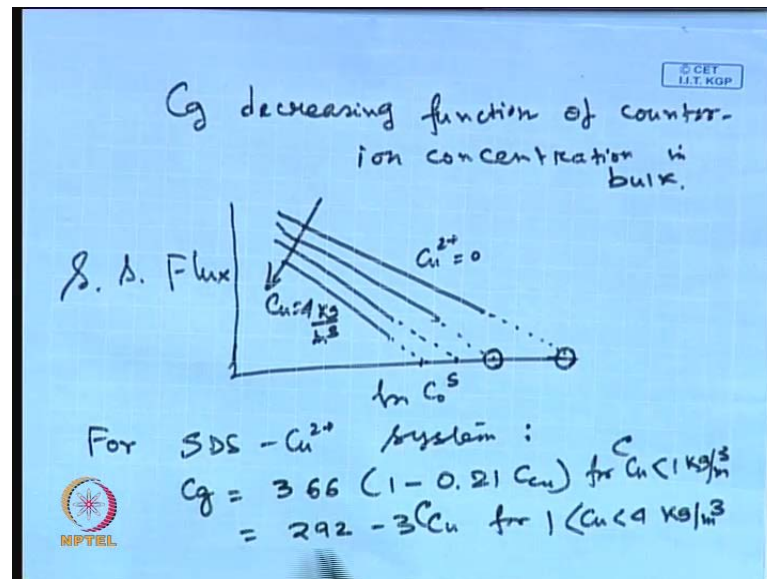 © CET
I.I.T. KGP
Cg decreasing function of counter-
ion concentration in
bulk.
S. S. Flux
Cu²⁺ = 0
Cu = 4 kg/m³
ln C₀ˢ
For SDS - Cu²⁺ system :
Cg = 366 (1 - 0.21 Ccu) for Ccu < 1 kg/m³
= 292 - 3Ccu for 1 < Cu < 4 kg/m³
NPTEL